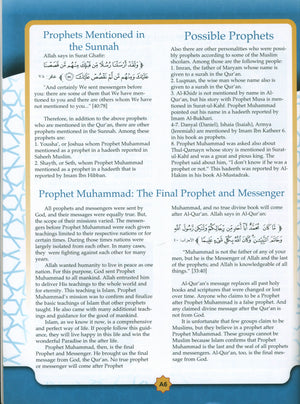 Prophets Mentioned in
the Sunnah
Allah says in Surat Ghafir:
"And certainly We sent messengers before
you: there are some of them that We have men-
tioned to you and there are others whom We have
not mentioned to you..." [40:78]
Therefore, in addition to the above prophets
who are mentioned in the Qur'an, there are other
prophets mentioned in the Sunnah. Among these
prophets are:
1. Yousha', or Joshua whom Prophet Muhammad
mentioned as a prophet in a hadeeth reported in
Saheeh Muslim.
2. Shayth, or Seth, whom Prophet Muhammad
mentioned as a prophet in a hadeeth that is
reported by Imam Ibn Hibban.
Possible Prophets
Also there are other personalities who were possi-
bly prophets according to some of the Muslim
scholars. Among those are the following people:
1. Imran, the father of Maryam whose name is
given to a surah in the Qur'an.
2. Luqman, the wise man whose name is also
given to a surah in the Qur'an.
3. Al-Khidr is not mentioned by name in Al-
Qur'an, but his story with Prophet Musa is men-
tioned in Surat-ul-Kahf. Prophet Muhammad
pointed out his name in a hadeeth reported by
Imam Al-Bukhari.
(Jeremiah) are mentioned by Imam Ibn Katheer in
his book as prophets.
8. Prophet Muhammad was asked also about
Thul-Qarnayn whose story is mentioned in Surat-
ul-Kahf and was a great and pious king. The
Prophet said about him, "I don't know if he was a
prophet or not." This hadeeth was reported by Al-
Hakim in his book Al-Mustadrak.
Prophet Muhammad: The Final Prophet and Messenger
All prophets and messengers were sent by
God, and their messages were equally true. But,
the scope of their missions varied. The messen-
gers before Prophet Muhammad were each given
teachings limited to their respective nations or for
certain times. During those times nations were
largely isolated from each other. In many cases,
they were fighting against each other for many
years.
Allah wanted humanity to live in peace as one
nation. For this purpose, God sent Prophet
Muhammad to all mankind. Allah entrusted him
to deliver His teachings to the whole world and
for eternity. This teaching is Islam. Prophet
Muhammad's mission was to confirm and finalize
the basic teachings of Islam that other prophets
taught. He also came with many additional teach-
ings and guidance for the good of mankind.
Islam, as we know it now, is a comprehensive
and perfect way of life. If people follow this guid-
ance, they will live happy in this life and win the
wonderful Paradise in the after life.
Prophet Muhammad, then, is the final
Prophet and Messenger. He brought us the final
message from God, the Qur'an. No true prophet
or messenger will come after Prophet
Muhammad, and no true divine book will come
after Al-Qur'an. Allah says in Al-Qur'an:
"Muhammad is not the father of any of your
men, but he is the Messenger of Allah and the last
of the prophets; and Allah is knowledgeable of all
things." [33:40]
Al-Qur'an's message replaces all past holy
books and scriptures that were changed or lost
over time. Anyone who claims to be a Prophet
after Prophet Muhammad is a false prophet. And
any claimed divine message after the Qur'an is
not from God.
It is unfortunate that few groups claim to be
Muslims, but they believe in a prophet after
Prophet Muhammad. These groups cannot be
Muslim because Islam confirms that Prophet
Muhammad is the last and the seal of all prophets
and messengers. Al-Qur'an, too, is the final mes-
sage from God.
A6